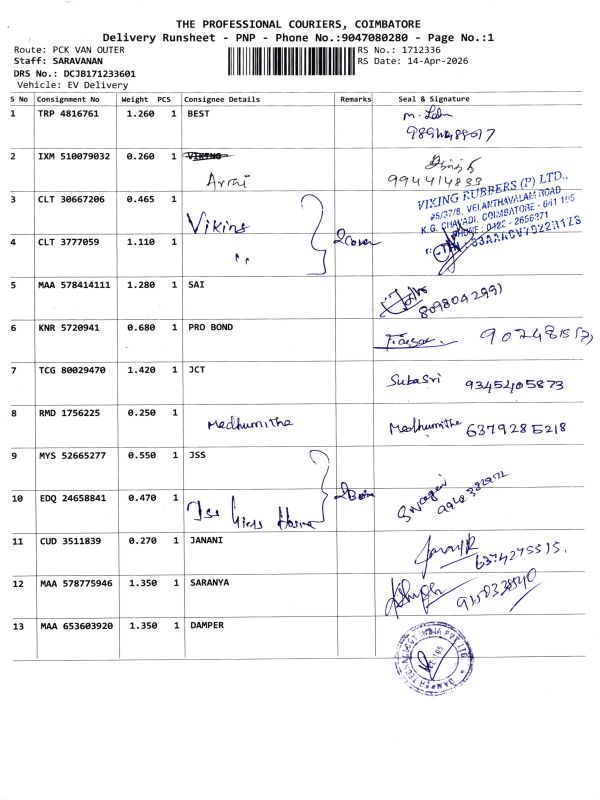 THE PROFESSIONAL COURIERS, COIMBATORE
Delivery Runsheet - PNP - Phone No.:9047080280 - Page No.:1
Route: PCK VAN OUTER
RS No.: 1712336
Staff: SARAVANAN
RS Date: 14-Apr-2026
DRS No.: DCJB171233601
Vehicle: EV Delivery
S No Consignment No Weight PCS Consignee Details Remarks Seal & Signature
1 TRP 4816761 1.260 1 BEST
2 IXM 510079032 0.260 1 VIKING
994414833
3 CLT 30667206 0.465 1 Viking
VIKING RUBBERS (P) LTD.,
#5/37/8, VELANTHAVALAM ROAD
K.G. CHAVADI, COIMBATORE - 641 105
PHONE : 0422 - 2656271
4 CLT 3777059 1.110 1 "
5 MAA 578414111 1.280 1 SAI
8098042991
6 KNR 5720941 0.680 1 PRO BOND
7 TCG 80029470 1.420 1 JCT SubaSri 9345405873
8 RMD 1756225 0.250 1 Madhumitha Madhumitha 6379285218
9 MYS 52665277 0.550 1 JSS
10 EDQ 24658841 0.470 1
11 CUD 3511839 0.270 1 JANANI 6374275515.
12 MAA 578775946 1.350 1 SARANYA
13 MAA 653603920 1.350 1 DAMPER